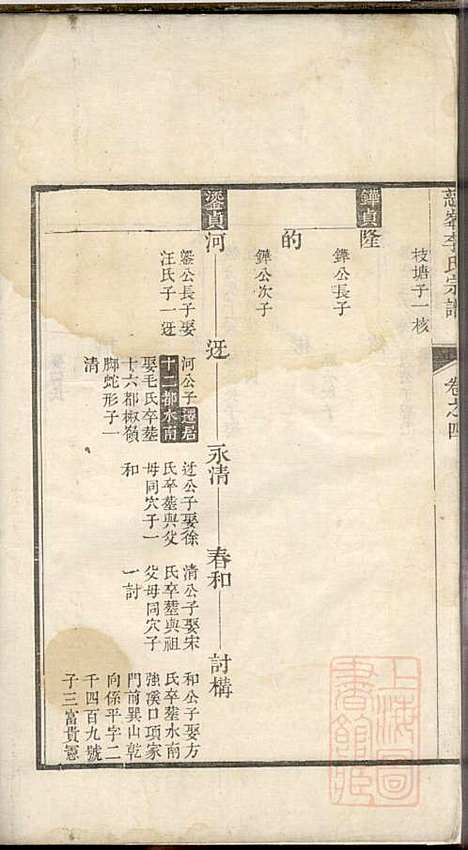 李氏宗譜
卷之四
枝塘子一核
鏵貞
隆
鏵公長子
的
鏵公次子
鎏貞
河
鎏公長子娶
汪氏子一迓
迓
河公子遷居
十二都水南
娶毛氏卒塟
十六都椒嶺
脚蛇形子一
清
永清
迓公子娶徐
氏卒塟與父
母同穴子一
和
春和
清公子娶宋
氏卒塟與祖
父母同穴子
一討
討構
和公子娶方
氏卒塟水南
強溪口項家
門前巽山乾
向係平字二
千四百九號
子三富貴憲
上海圖書館藏